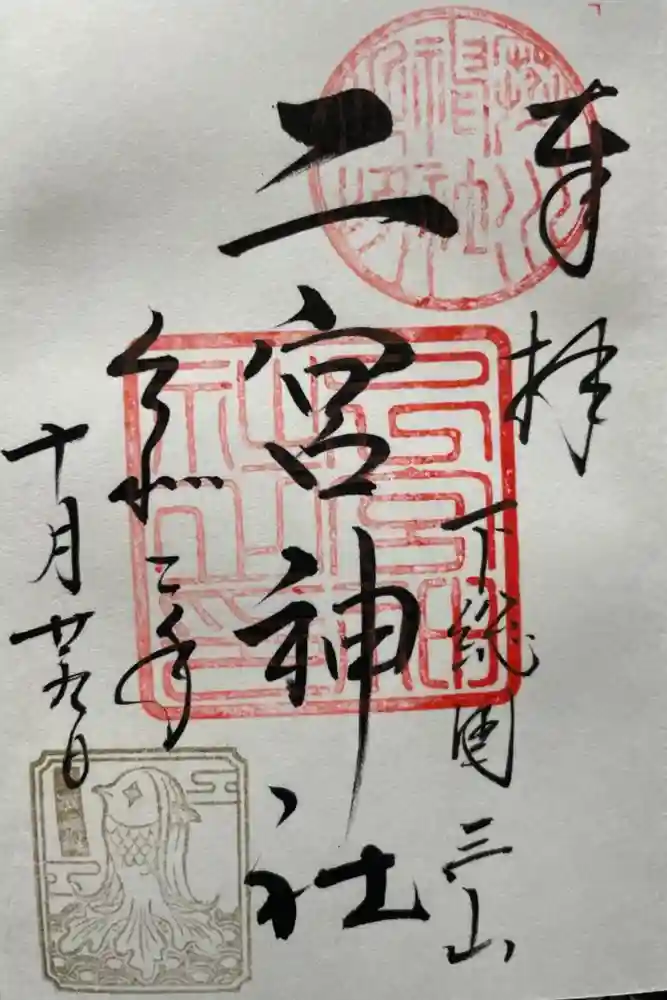 奉拝
下総國三山
二宮神社
令和二年
十月廿九日